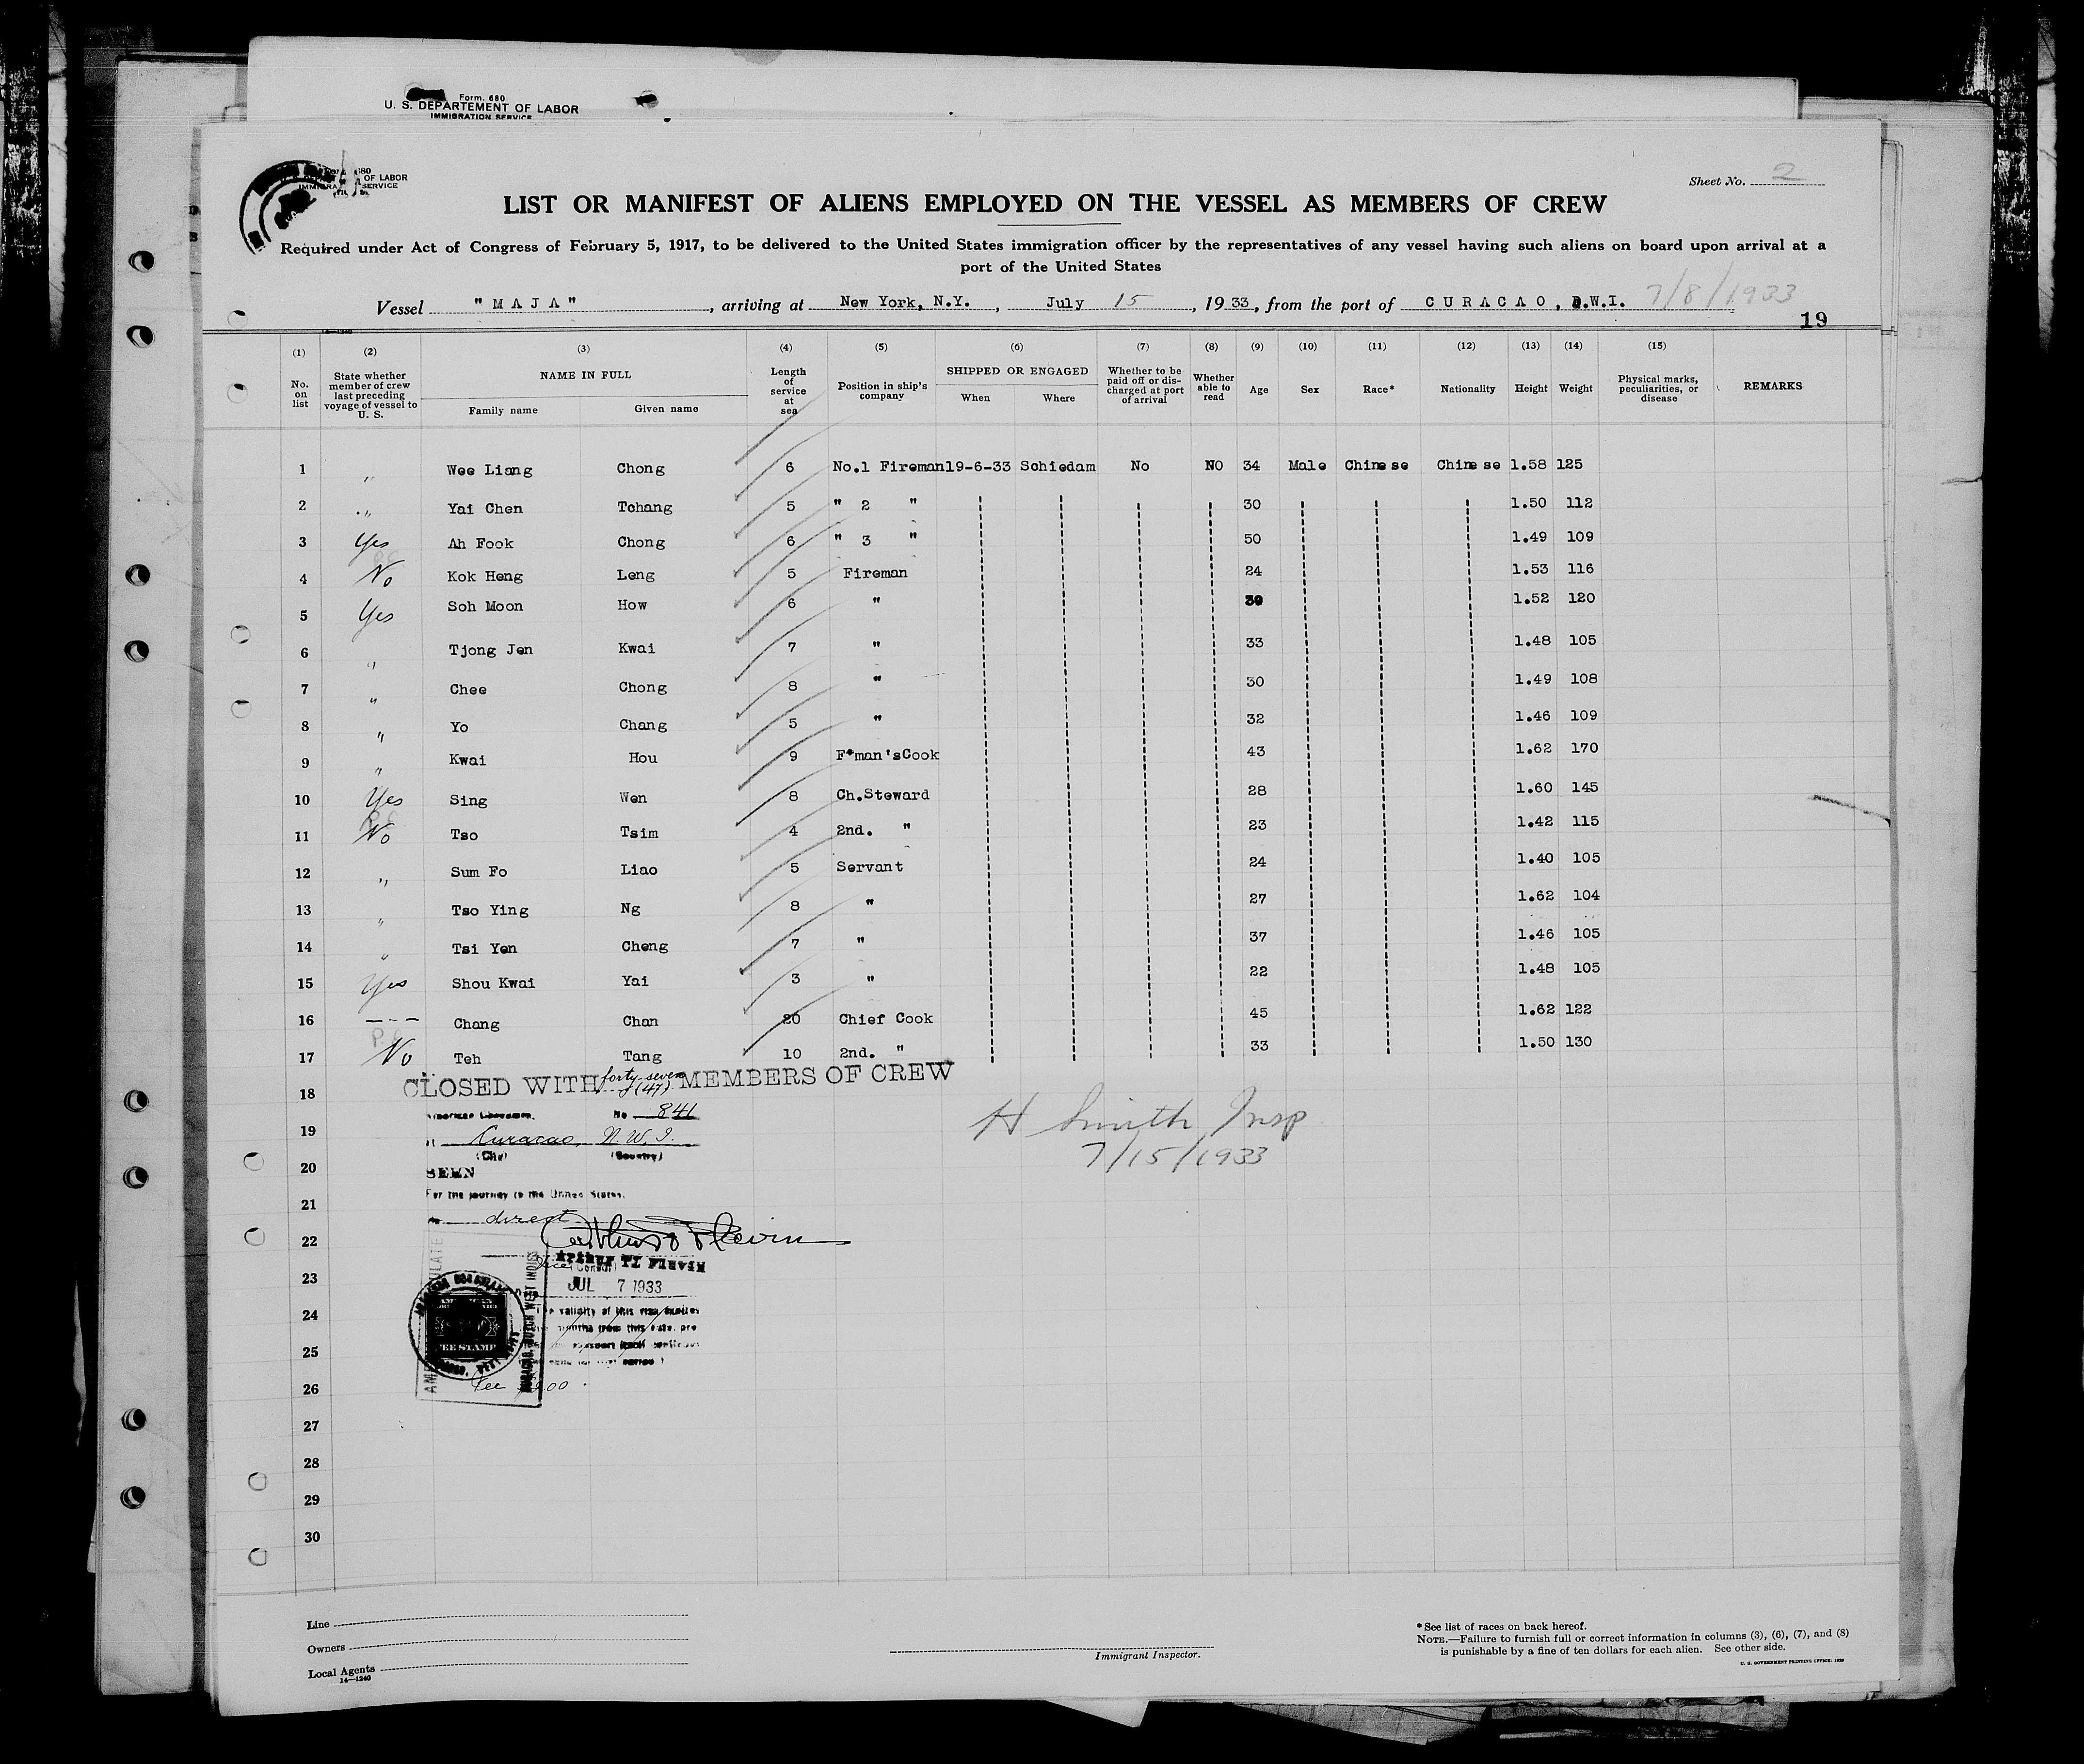 Form. 680
U. S. DEPARTEMENT OF LABOR
IMMIGRATION SERVICE
OF LABOR
SERVICE
Sheet No. 2
LIST OR MANIFEST OF ALIENS EMPLOYED ON THE VESSEL AS MEMBERS OF CREW
Required under Act of Congress of February 5, 1917, to be delivered to the United States immigration officer by the representatives of any vessel having such aliens on board upon arrival at a
port of the United States
Vessel "MAJA", arriving at New York, N.Y., July 15, 1933, from the port of CURACAO, D.W.I. 7/8/1933
19
14—1240
(1) (2) (3) (4) (5) (6) (7) (8) (9) (10) (11) (12) (13) (14) (15)
No. on list State whether member of crew last preceding voyage of vessel to U. S. NAME IN FULL Family name Given name Length of service at sea Position in ship's company SHIPPED OR ENGAGED When Where Whether to be paid off or discharged at port of arrival Whether able to read Age Sex Race* Nationality Height Weight Physical marks, peculiarities, or disease REMARKS
1 " Wee Liang Chong 6 No.1 Fireman 19-6-33 Schiedam No NO 34 Male Chinese Chinese 1.58 125
2 " Yai Chen Tchang 5 " 2 " 30 1.50 112
3 Yes Ah Fook Chong 6 " 3 " 50 1.49 109
4 No Kok Heng Leng 5 Fireman 24 1.53 116
5 Yes Soh Moon How 6 " 39 1.52 120
6 " Tjong Jen Kwai 7 " 33 1.48 105
7 " Chee Chong 8 " 30 1.49 108
8 " Yo Chang 5 " 32 1.46 109
9 " Kwai Hou 9 F*man'sCook 43 1.62 170
10 Yes Sing Wen 8 Ch.Steward 28 1.60 145
11 No Tso Tsim 4 2nd. " 23 1.42 115
12 " Sum Fo Liao 5 Servant 24 1.40 105
13 " Tso Ying Ng 8 " 27 1.62 104
14 " Tsi Yen Cheng 7 " 37 1.46 105
15 Yes Shou Kwai Yai 3 " 22 1.48 105
16 --- Chang Chan 20 Chief Cook 45 1.62 122
17 No Teh Tang 10 2nd. " 33 1.50 130
CLOSED WITH forty-seven (47) MEMBERS OF CREW
18
American Consulate. No 841
19
at Curacao, N.W.I.
(City) (Country)
H Smith Insp
7/15/1933
20
SEEN
For the journey to the United States.
21
direct
22
Arthur TI Flavin
Vice (Consul)
23
JUL 7 1933
24
The validity of this visa expires
months from this date, pro
25
FEE STAMP
26
Fee
27
28
29
30
Line
Owners
Local Agents
14—1240
Immigrant Inspector.
* See list of races on back hereof.
NOTE.—Failure to furnish full or correct information in columns (3), (6), (7), and (8)
is punishable by a fine of ten dollars for each alien. See other side.
U. S. GOVERNMENT PRINTING OFFICE: